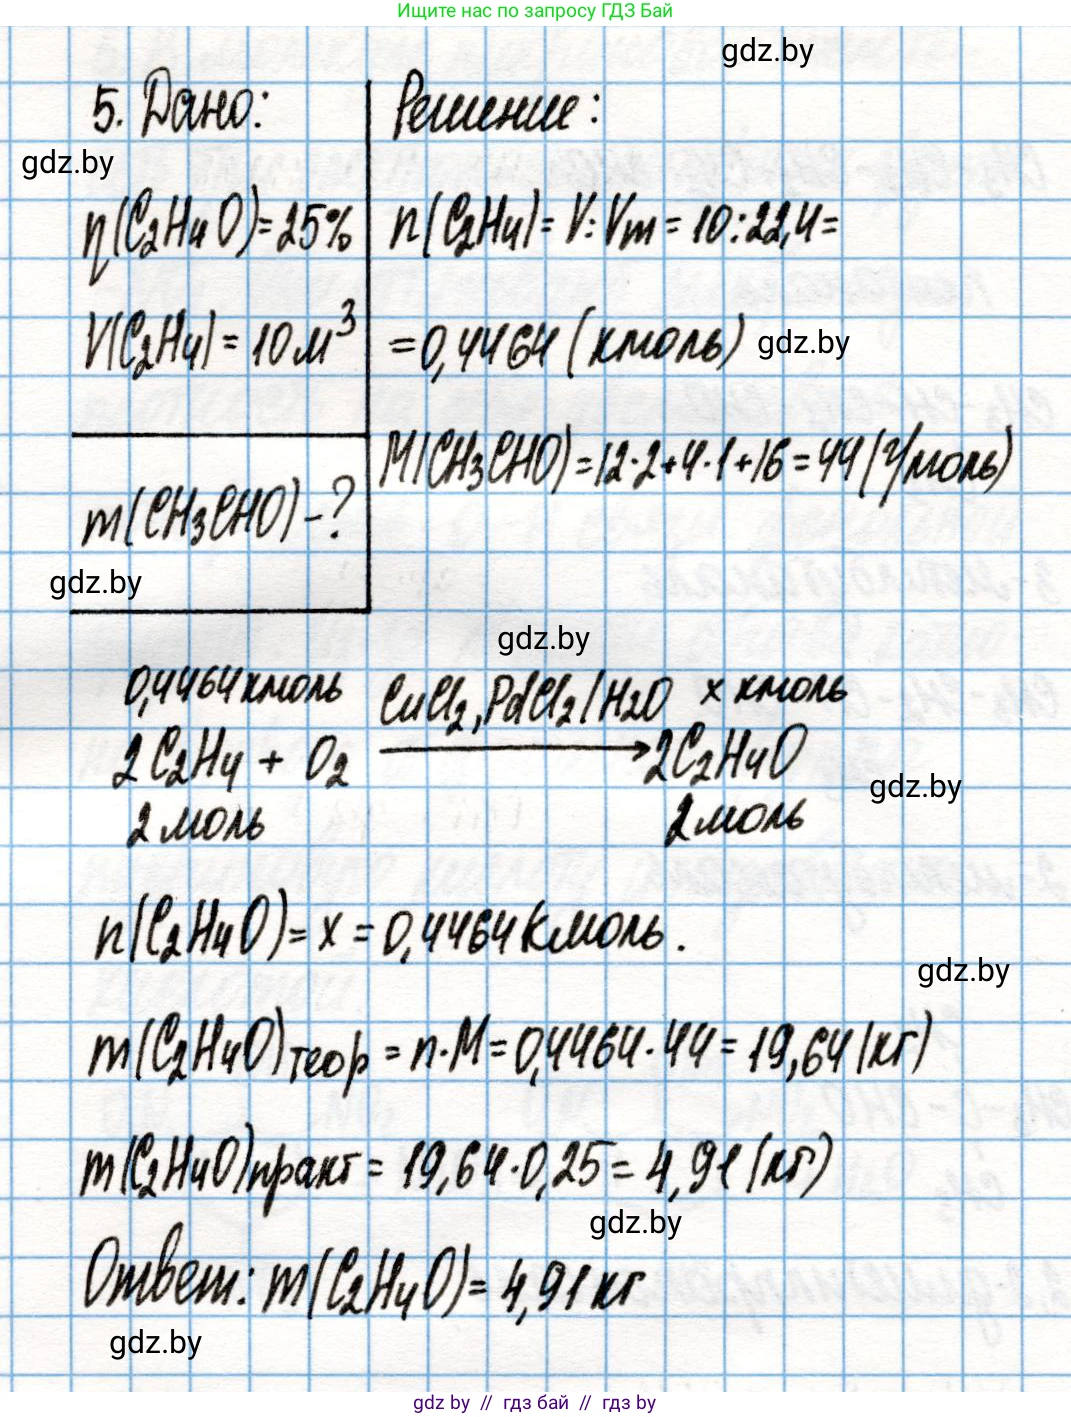 Ищите нас по запросу ГДЗ Бай
gdz.by
5. Дано:
Решение:
gdz.by
η(C₂H₄O)=25%
n(C₂H₄)= V:Vm = 10:22,4=
V(C₂H₄)= 10 м³
=0,4464 (кмоль)
gdz.by
M(CH₃CHO)=12·2+4·1+16=44(г/моль)
m(CH₃CHO)-?
gdz.by
gdz.by
0,4464 кмоль
CuCl₂,PdCl₂/H₂O
x кмоль
2C₂H₄ + O₂ → 2C₂H₄O
gdz.by
2 моль
2 моль
n(C₂H₄O)= x = 0,4464 кмоль.
gdz.by
m(C₂H₄O)теор = n·M= 0,4464·44= 19,64 (кг)
m(C₂H₄O)практ = 19,64·0,25= 4,91 (кг)
gdz.by
Ответ: m(C₂H₄O)= 4,91 кг
gdz.by
gdz.by // гдз бай // гдз by